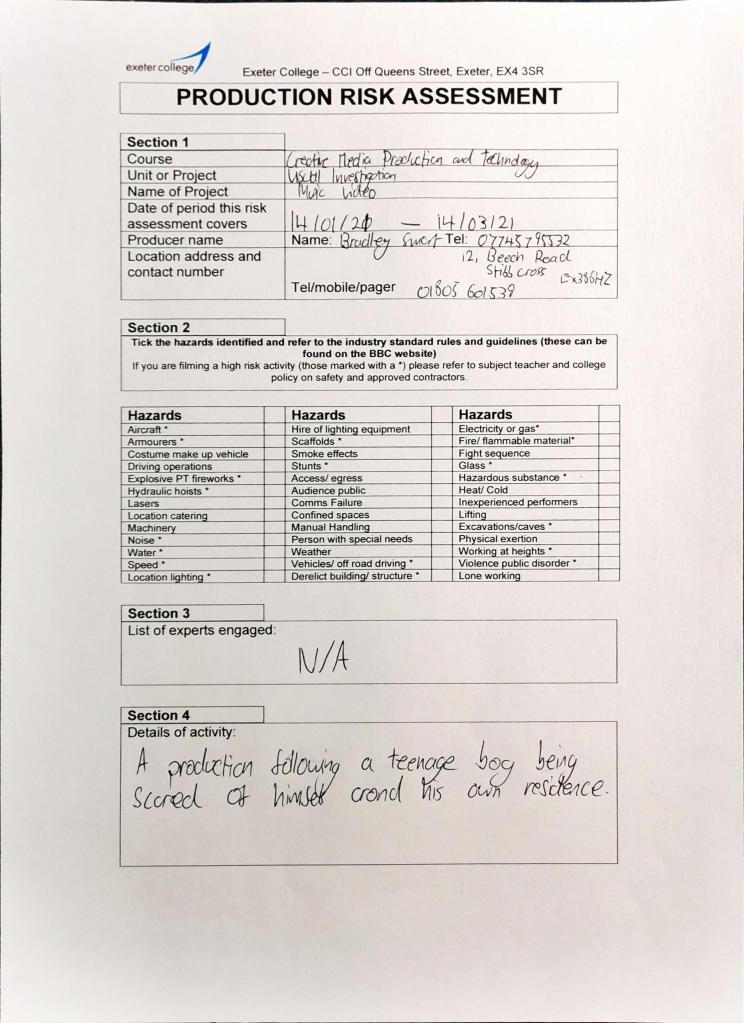 exeter college
Exeter College – CCI Off Queens Street, Exeter, EX4 3SR
PRODUCTION RISK ASSESSMENT
Section 1
Course Creative Media Production and Technology
Unit or Project Investigation
Name of Project Music Video
Date of period this risk
assessment covers 14/01/21 — 14/03/21
Producer name Name: Bradley Tel: 07745795532
Location address and 12, Beech Road
contact number Stibb cross EX386HZ
Tel/mobile/pager 01805 601539
Section 2
Tick the hazards identified and refer to the industry standard rules and guidelines (these can be
found on the BBC website)
If you are filming a high risk activity (those marked with a *) please refer to subject teacher and college
policy on safety and approved contractors.
Hazards Hazards Hazards
Aircraft * Hire of lighting equipment Electricity or gas*
Armourers * Scaffolds * Fire/ flammable material*
Costume make up vehicle Smoke effects Fight sequence
Driving operations Stunts * Glass *
Explosive PT fireworks * Access/ egress Hazardous substance *
Hydraulic hoists * Audience public Heat/ Cold
Lasers Comms Failure Inexperienced performers
Location catering Confined spaces Lifting
Machinery Manual Handling Excavations/caves *
Noise * Person with special needs Physical exertion
Water * Weather Working at heights *
Speed * Vehicles/ off road driving * Violence public disorder *
Location lighting * Derelict building/ structure * Lone working
Section 3
List of experts engaged:
N/A
Section 4
Details of activity:
A production following a teenage boy being
scared of himself around his own residence.